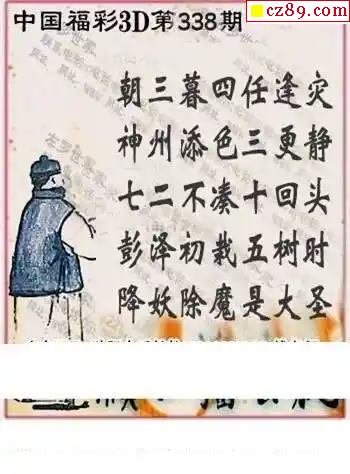 cz89.com
中国福彩3D第338期
朝三暮四任逢灾
神州添色三更静
七二不凑十回头
彭泽初栽五树时
降妖除魔是大圣